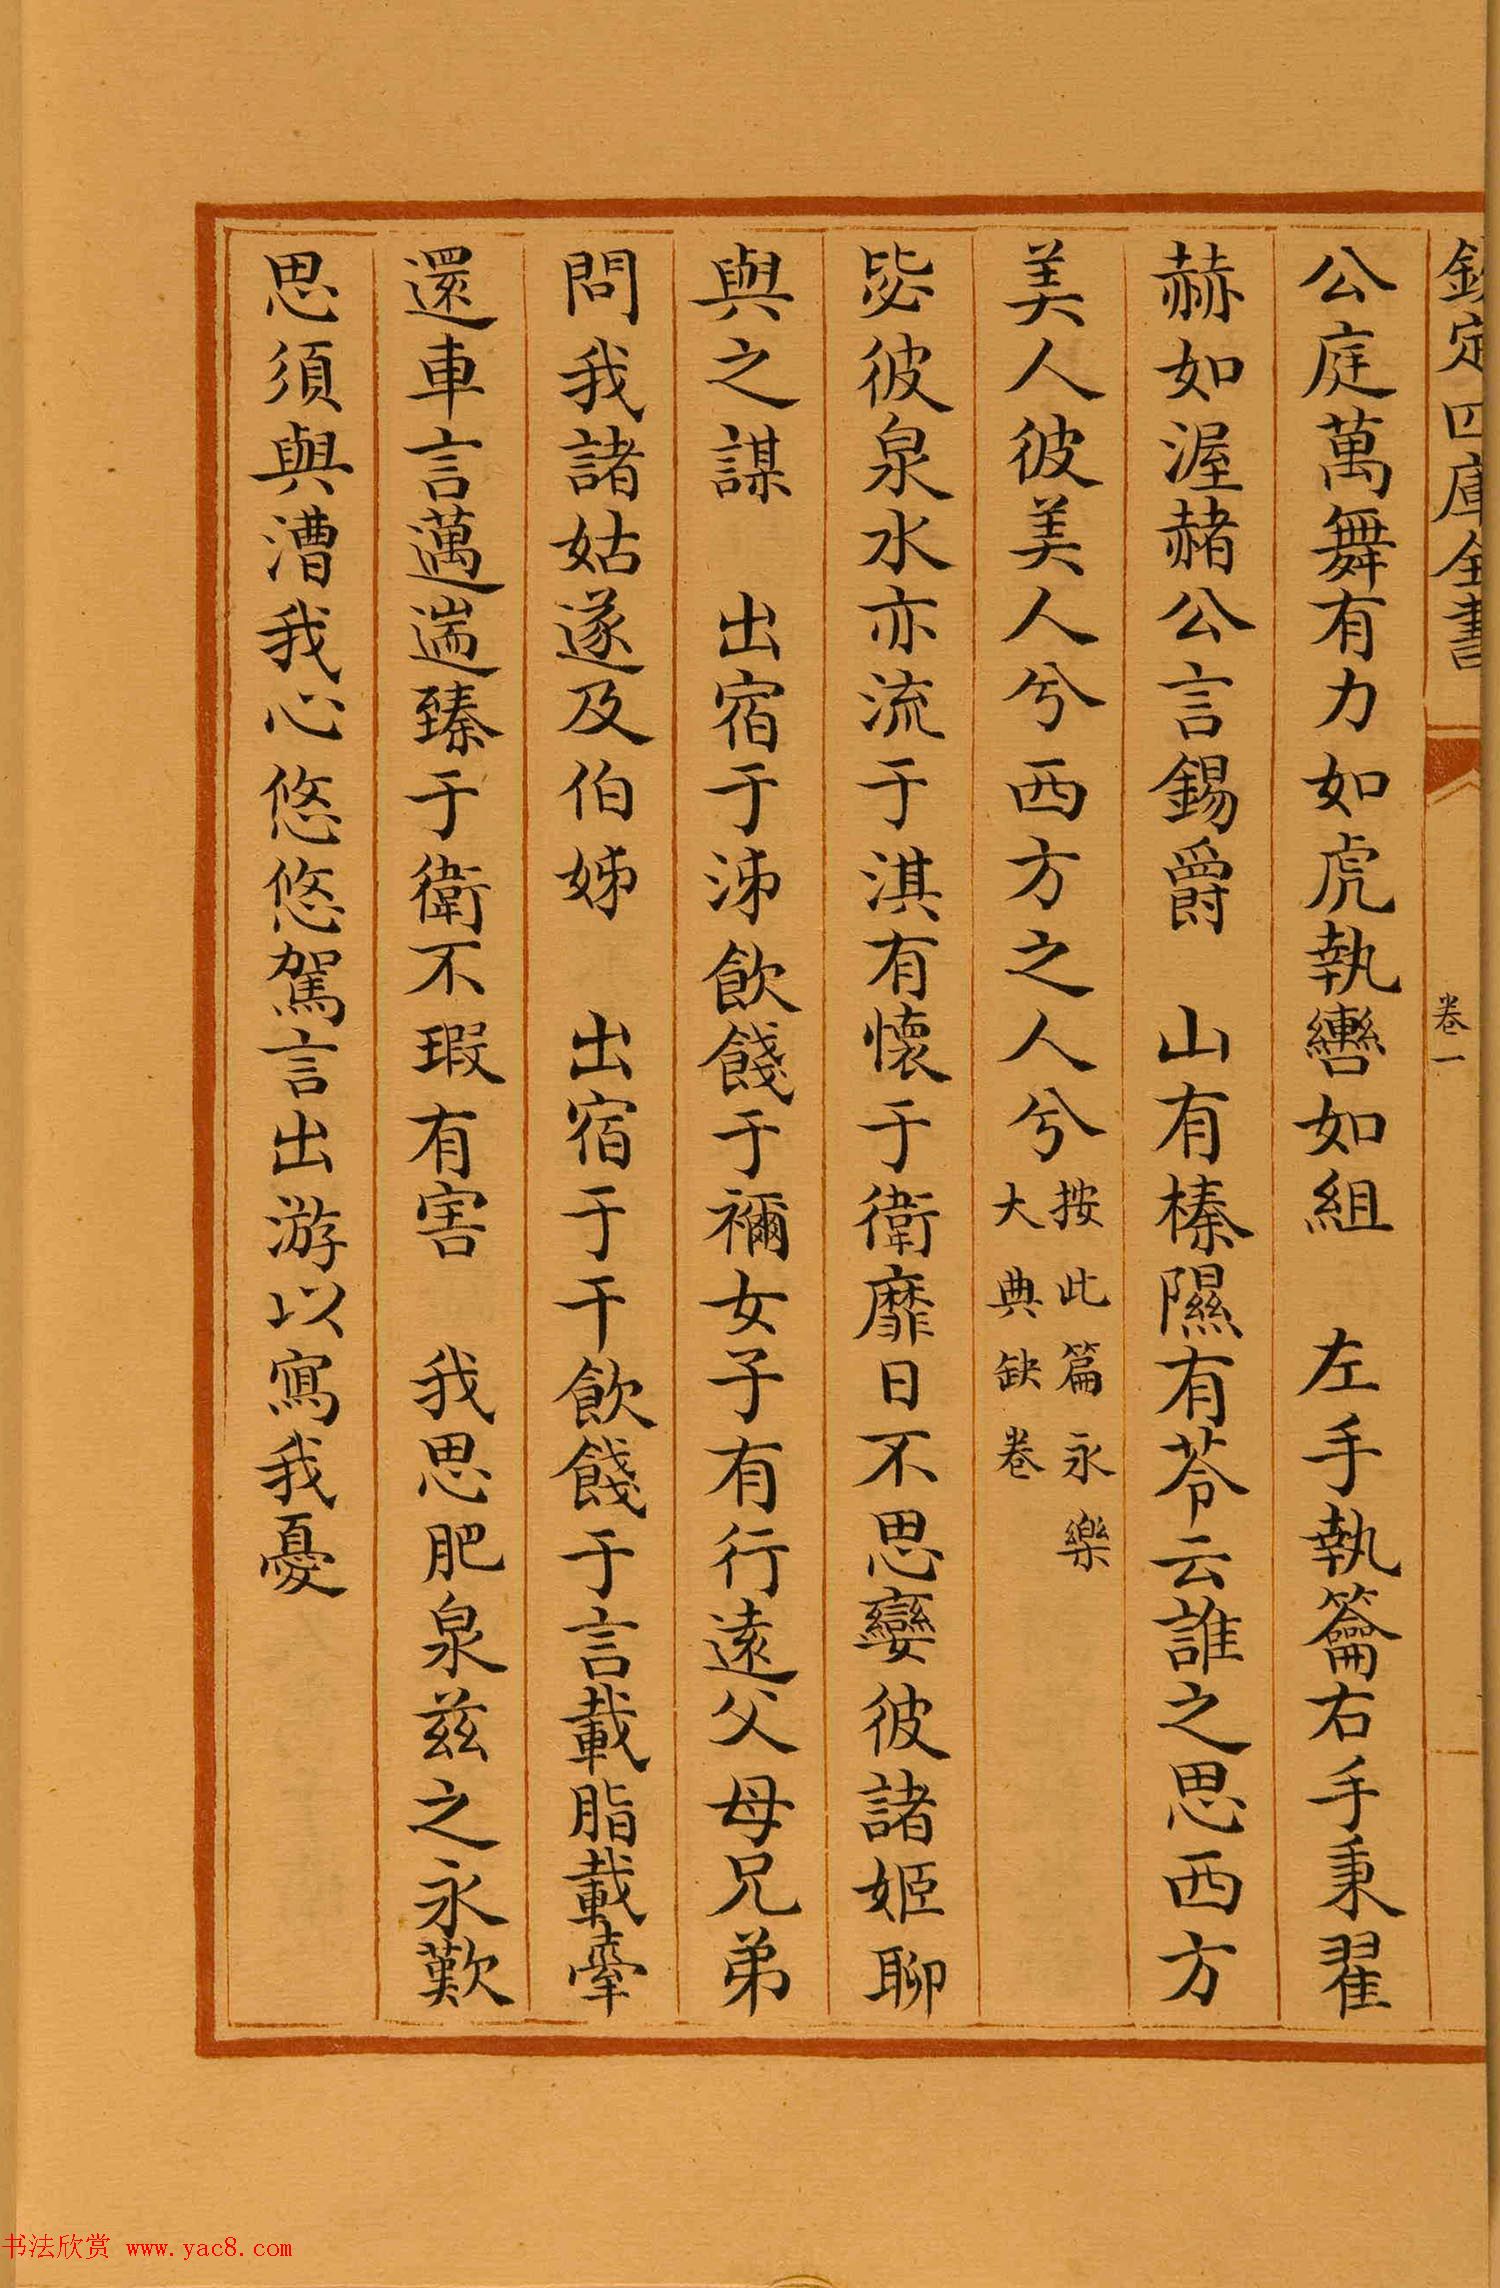 欽定四庫全書
卷一
公庭萬舞有力如虎執轡如組　左手執籥右手秉翟
赫如渥赭公言錫爵　山有榛隰有苓云誰之思西方
美人彼美人兮西方之人兮
按此篇永樂
大典缺卷
毖彼泉水亦流于淇有懷于衛靡日不思孌彼諸姬聊
與之謀　出宿于泲飲餞于禰女子有行遠父母兄弟
問我諸姑遂及伯姊　出宿于干飲餞于言載脂載舝
還車言邁遄臻于衛不瑕有害　我思肥泉茲之永歎
思須與漕我心悠悠駕言出游以寫我憂
书法欣赏 www.yac8.com